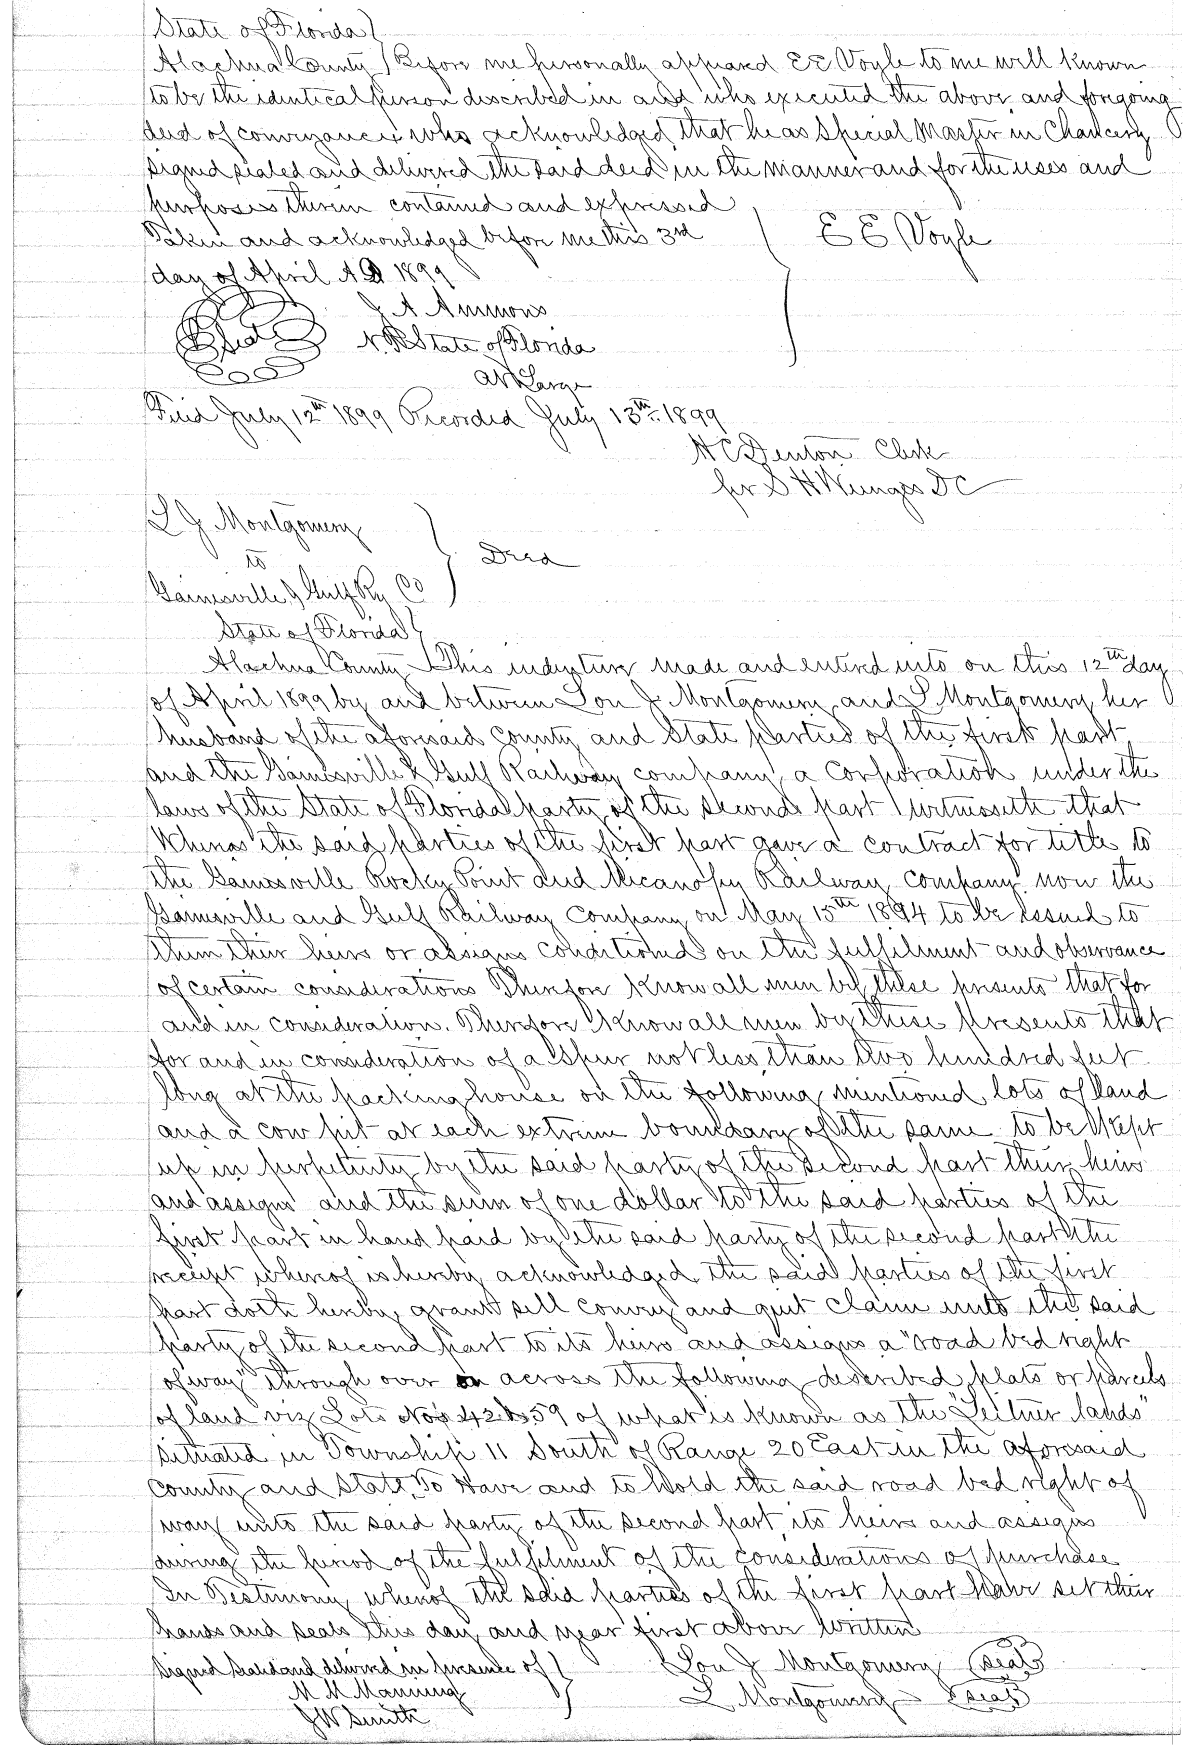 State of Florida
Alachua County Before me personally appeared E E Voyle to me well known
to be the identical person described in and who executed the above and foregoing
deed of conveyance & who acknowledged that he as Special Master in Chancery
signed sealed and delivered the said deed in the manner and for the uses and
purposes therein contained and expressed
Taken and acknowledged before me this 3rd
E E Voyle
day of April A D 1899
J A Ammons
Seal
N.P. State of Florida
at Large
Filed July 12th 1899 Recorded July 13th 1899
H C Denton Clerk
per S H Wienges D C
L J Montgomery
to
Deed
Gainesville & Gulf Ry Co
State of Florida
Alachua County This indenture made and entered into on this 12th day
of April 1899 by and between Lou J Montgomery and L Montgomery her
husband of the aforesaid County and State parties of the first part
and the Gainesville & Gulf Railway company, a corporation under the
laws of the State of Florida party of the second part Witnesseth that
Whereas the said parties of the first part gave a contract for title to
the Gainesville Rocky Point and Micanopy Railway Company now the
Gainesville and Gulf Railway Company on May 15th 1894 to be issued to
them their heirs or assigns conditioned on the fulfilment and observance
of certain considerations Therefore Know all men by these presents that for
and in consideration. Therefore Know all men by these presents that
for and in consideration of a spur not less than two hundred feet
long at the packing house on the following mentioned lots of land
and a cow pit at each extreme boundary of the same to be Kept
up in perpetuity by the said party of the second part their heirs
and assigns and the sum of one dollar to the said parties of the
first part in hand paid by the said party of the second part the
receipt whereof is hereby acknowledged the said parties of the first
part doth hereby grant sell convey and quit claim unto the said
party of the second part to its heirs and assigns a "road bed right
of way" through over on across the following described plats or parcels
of land viz Lots Nos 42 & 59 of what is known as the "Leitner lands"
situated in Township 11 South of Range 20 East in the aforesaid
County and State, To Have and to Hold the said road bed right of
way unto the said party of the second part, its heirs and assigns
during the period of the fulfilment of the considerations of purchase
In Testimony whereof the said parties of the first part have set their
hands and seals this day and year first above written
Signed Sealed and delivered in presence of
Lou J Montgomery Seal
M M Manning
L Montgomery Seal
J W Smith